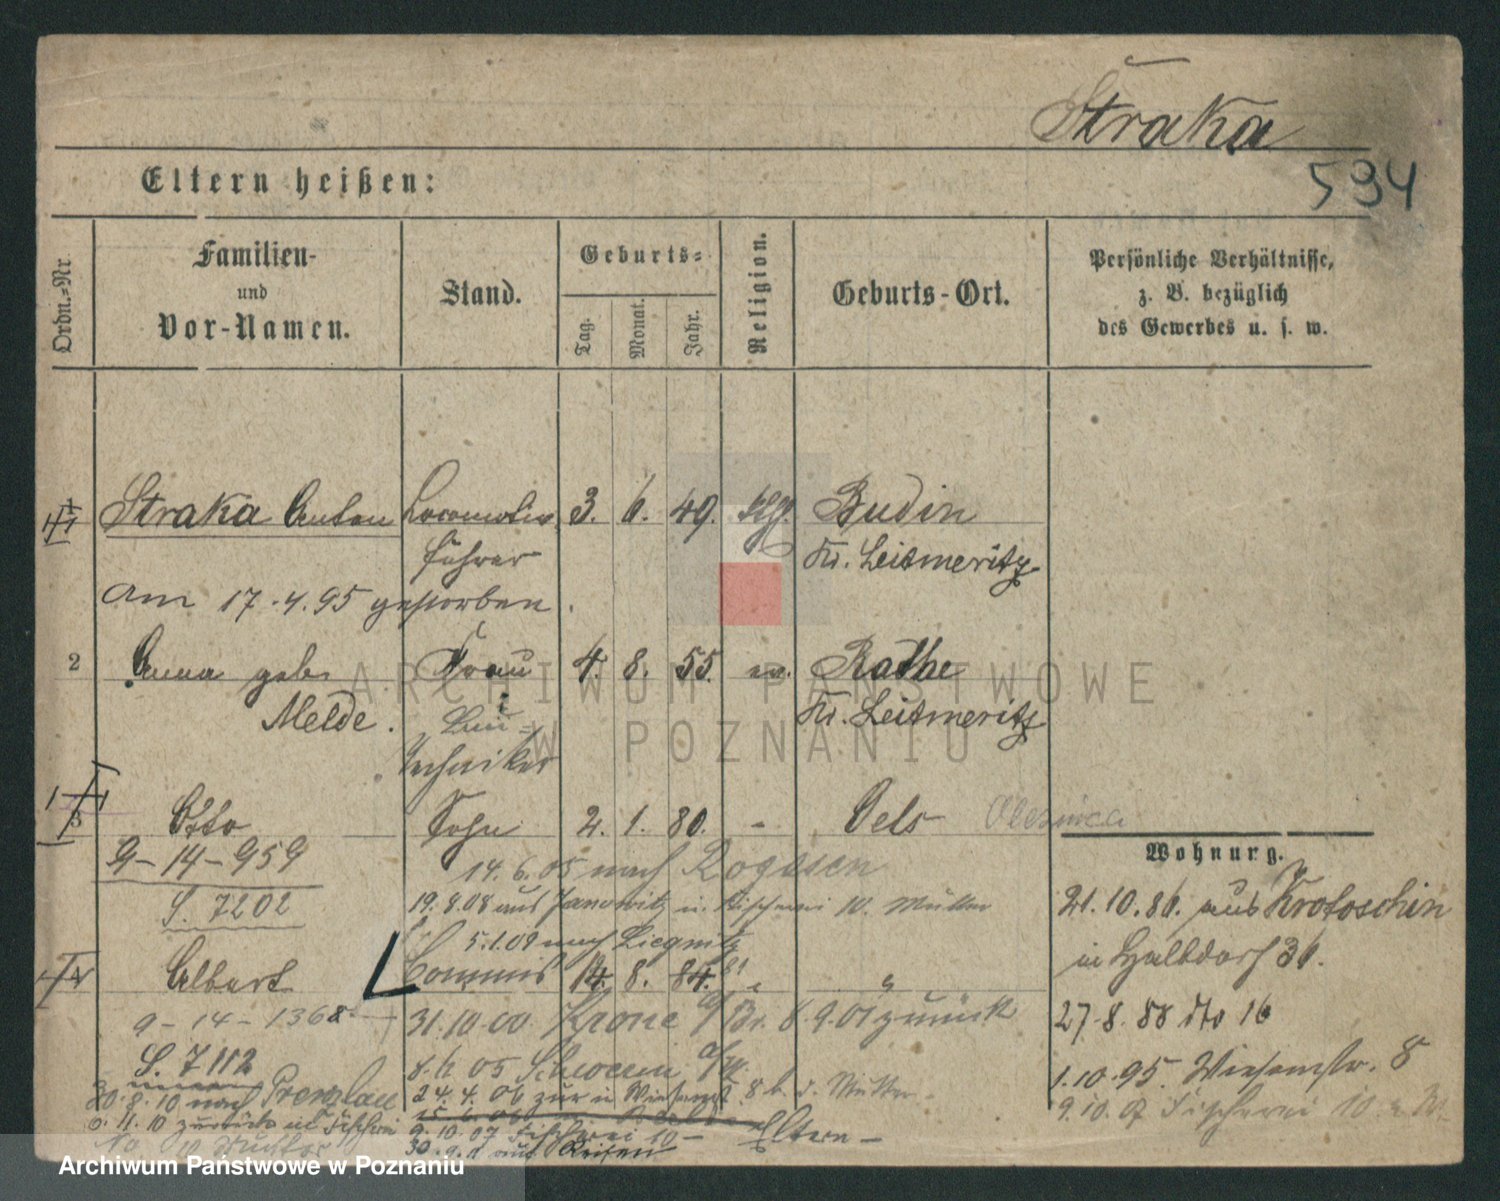 Straka
594
Eltern heißen:
Ordn.-Nr.
Familien- und Vor-Namen.
Stand.
Geburts-
Tag.
Monat.
Jahr.
Religion.
Geburts-Ort.
Persönliche Verhältnisse, z. B. bezüglich des Gewerbes u. s. w.
1 Straka Anton Locomotiv 3. 6. 49. Budin
führer Kr. Leitmeritz
am 17.4.95 gestorben.
2 Anna geb. Frau 4. 8. 55. ev. Rathe
Melde. Kr. Leitmeritz
Techniker
3 Otto Sohn 2. 1. 80. - Oels Olesnica
9-14-959
14.6.05 nach Rogasen
S. 7202
19.8.08 aus Janowitz in Fischerei 10. Mutter
5.1.09 nach Liegnitz
4 Albert Commis 14. 8. 84. "
9-14-1368
31.10.00 Krone a/Br. 8.9.01 zurück
S. 7112
8.6.05 Schwerin a/W.
30.8.10 nach Prenzlau
24.4.06 zur in Wiesenstr. 8 b. d. Mutter
6.11.10 zurück in Fischerei
9.10.07 Fischerei 10 - Eltern -
10 Mutter
Wohnung.
21.10.86. aus Krotoschin
in Halbdorf 36.
27.8.88 dto 16
1.10.95. Wiesenstr. 8
9.10.07 Fischerei 10
ARCHIWUM PAŃSTWOWE
W POZNANIU
Archiwum Państwowe w Poznaniu